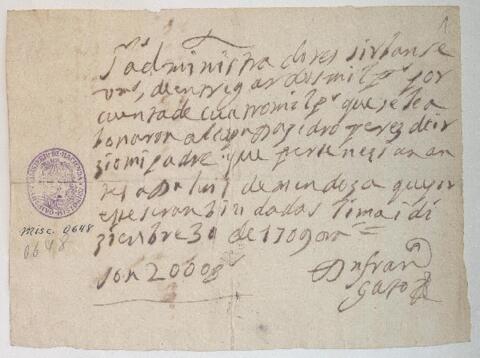 S.res administradores sirbanse
Vms, de entregar dos mil ps por
cuenta de cuatro mil ps que se le a
bonaron al capn Da pedro perez de ir
zio mi padre que pertenezian an
tes a Dn luis de mendoza que por
este seran bin dadas lima i di
ziembre 30 de 1709 as
son 2000 ps
Dn fran
Misc. 0648
0648